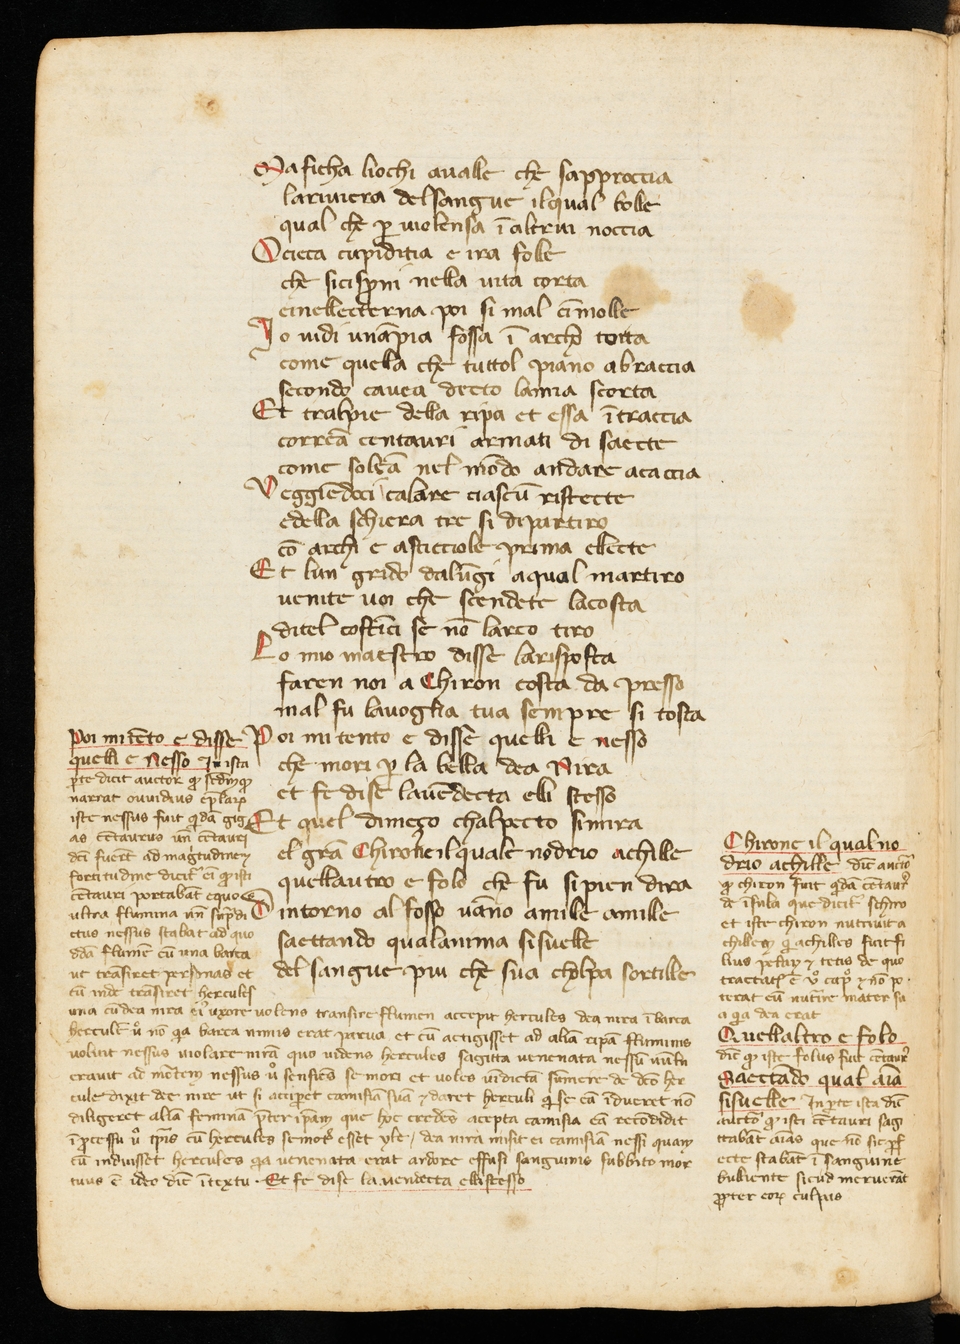 Maficha liochi aualle che sapproccia
lariuiera delsangue ilqual bolle
qual che p uiolensa ī altrui noccia
O cieca cupiditia e ira folle
che sicisproni nella uita corta
einellecterna poi si mal cīmolle
Io uidi unāpia fossa ī archo torta
come quella che tuttol piano abraccia
secondo cauea decto lamia scorta
Et tralpie della ripa et essa ītraccia
correā centauri armati di saecte
come soleā nel mōdo andare acaccia
Veggiēdoci calare ciascū ristecte
edella schiera tre si dipartiro
cō archi e asticciole prima electe
Et lun grido dalūgi aqual martiro
uenite uoi che scendete lacosta
ditel costīci se nō larco tiro
Lo mio maestro disse larisposta
faren noi a Chiron costa da presso
mal fu lauoglia tua sempre si tosta
Poi mi tento e disse quelli e nesso
che mori p la bella dea Nira
et fe dise lauēdecta elli stesso
Et quel dimezo chalpecto simira
el grā Chirone ilquale nodrio achille
quellautro e folo che fu sipien dira
Dintorno al fosso uāno amille amille
saettando qualanima sisuelle
del sangue piu che sua cholpa sortille
Poi mi tēto e disse
quelli e Nesso In ista
pte dicit auctor
narrat ouuidius
iste nessus fuit qdā gig
as cētaurus
dci fuert ad magtudinē
fortitudine dicit
cētauri portabāt equo
ultra flumina
ectus nessus stabat ad quo
ddā flumē cū una barca
ut trāsiret personas et
cū inde trāsiret hercules
una cū dea nira ei uxore uolens transire flumen accepit hercules dea nira ī barca
hercule nō qa barca nimis erat parua et cū actigisset ad aliā ripā fluminis
uoluit nessus uiolare nirā quo uidens hercules sagitta uenenata nessū uuln
erauit ad mortem nessus sensiēs se mori et uoles uīdictā sumere de dco her
cule dixit dee nire ut si acciperet camisiā suā daret herculi īdueret nō
diligeret aliā feminā pter ipam que hoc credēs acepta camisia eā recōdidit
ī pcessu cū hercules esset yle dea nira misit ei camisiā nessi quam
cū induisset hercules qa uenenata erat ardore effusi sanguinis subbito mor
tuus ē ideo dic ī textu Et fe dise la uendecta ellistesso
Chirone il qual no
drio achille dic auctor
chiron fuit qdā cētaur
de īsula que dicit schiro
et iste chiron nutriuit a
chillem achilles fuit fi
lius et tetis de quo
tractat
terat eū nutrire mater su
a qa dea erat
Quellaltro e folo
dic iste folus fuit cētaur
Saectādo qual aīa
sisuelle In pte ista dic
auctor isti cētauri sagi
ttabāt aīas que
ecte stabāt ī sanguine
bulliente sicud meruerāt
ppter eor culpis